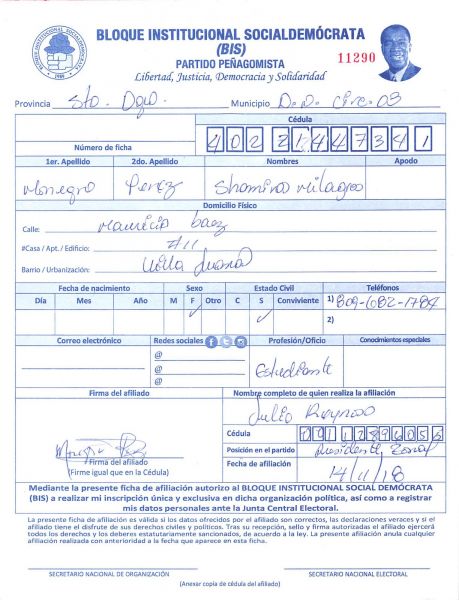 BLOQUE INSTITUCIONAL SOCIALDEMÓCRATA
(BIS)
PARTIDO PEÑAGOMISTA
Libertad, Justicia, Democracia y Solidaridad
11290
Provincia Sto. Dgo. Municipio D.N. Circ. 03
Cédula
Número de ficha 402 2144734 1
1er. Apellido 2do. Apellido Nombres Apodo
Monegro Perez Milagros
Domicilio Físico
Calle: Mauricio baez
#Casa / Apt. / Edificio: 711
Barrio / Urbanización: Villa Juana
Fecha de nacimiento Sexo Estado Civil Teléfonos
Día Mes Año M F Otro C S Conviviente 1) 809-682-1784
2)
Correo electrónico Redes sociales Profesión/Oficio Conocimientos especiales
@
@
@
Estudiante
Firma del afiliado Nombre completo de quien realiza la afiliación
Julio Reynoso
Cédula
Posición en el partido Presidente Zonal
Fecha de afiliación 14/11/18
Firma del afiliado
(Firme igual que en la Cédula)
Mediante la presente ficha de afiliación autorizo al BLOQUE INSTITUCIONAL SOCIAL DEMÓCRATA
(BIS) a realizar mi inscripción única y exclusiva en dicha organización política, así como a registrar
mis datos personales ante la Junta Central Electoral.
La presente ficha de afiliación es válida si los datos ofrecidos por el afiliado son correctos, las declaraciones veraces y si el
afiliado tiene el disfrute de sus derechos civiles y políticos. Tras su recepción, sello y firma autorizados el afiliado ejercerá
todos los derechos y los deberes estatutariamente sancionados, de acuerdo a la ley. La presente afiliación anula cualquier
afiliación realizada con anterioridad a la fecha que aparece en esta ficha.
SECRETARIO NACIONAL DE ORGANIZACIÓN SECRETARIO NACIONAL ELECTORAL
(Anexar copia de cédula del afiliado)